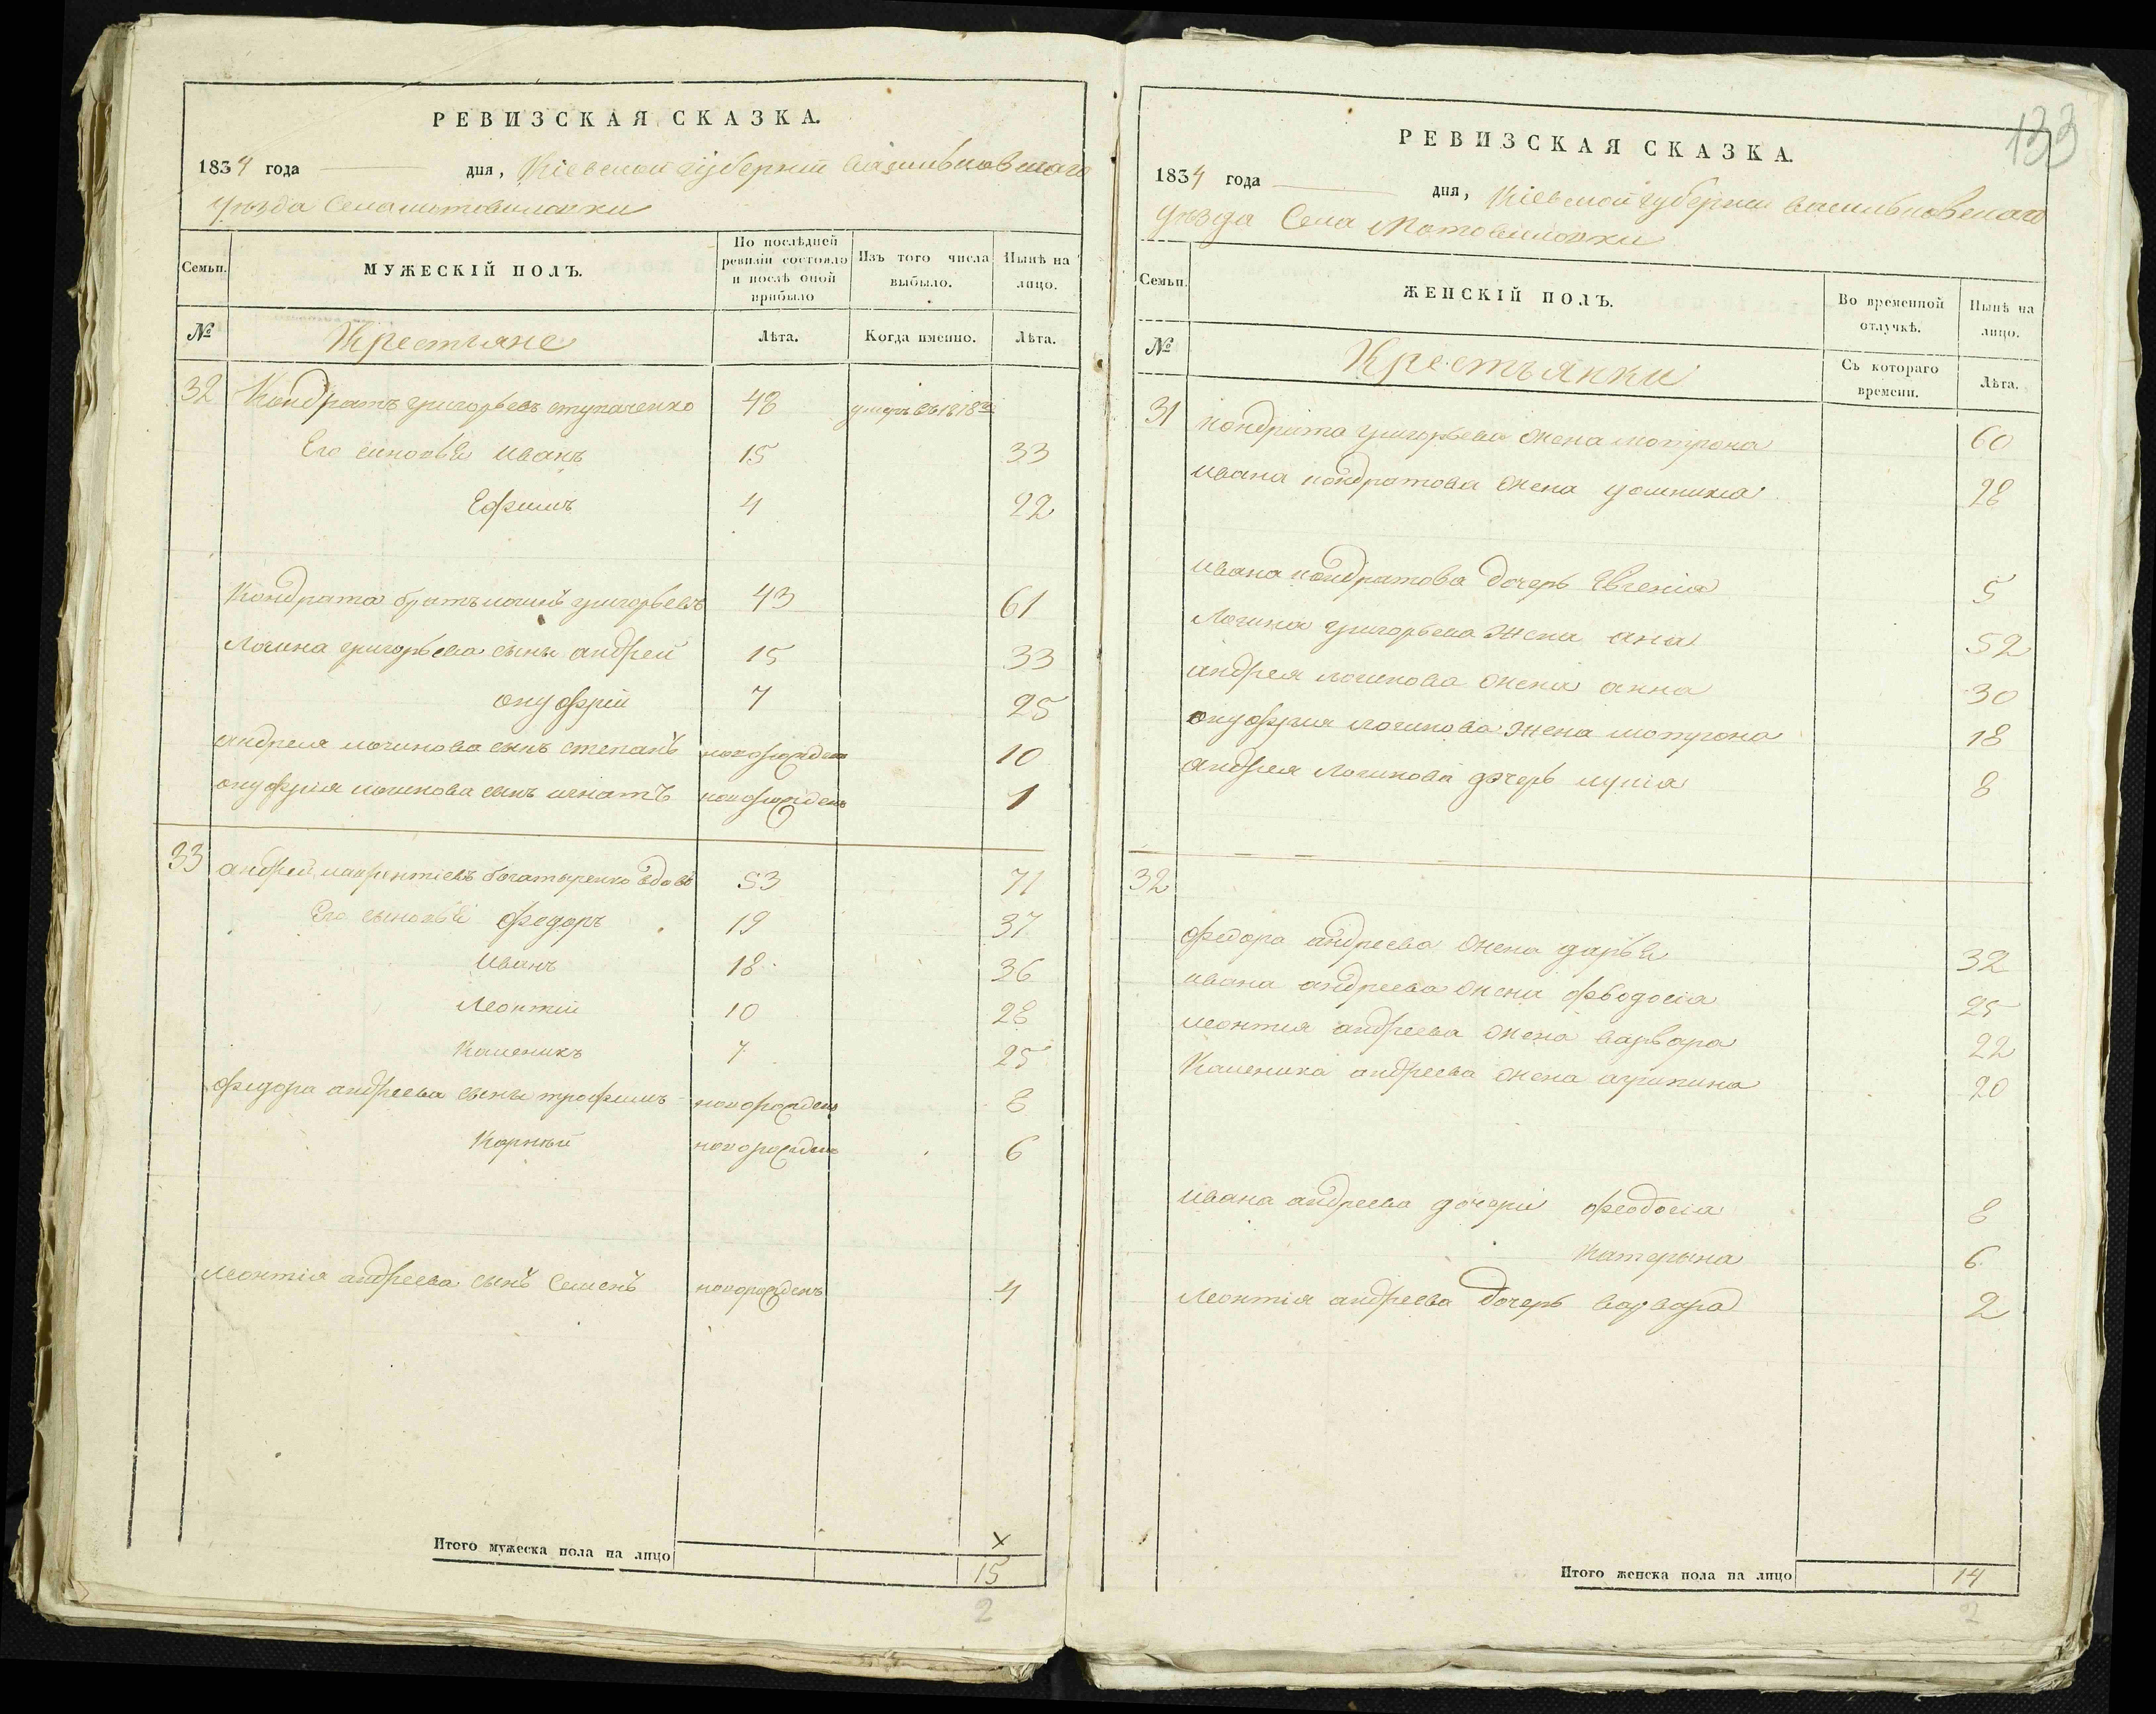 РЕВИЗСКАЯ СКАЗКА.
1834 года дня, Кіевской губерніи васильковскаго
уѣзда Села мотовиловки
Семьи.
МУЖЕСКІЙ ПОЛЪ.
По послѣдней ревизіи состояло и послѣ оной прибыло
Изъ того числа выбыло.
Нынѣ на лицо.
№ Крестьяне Лѣта. Когда именно. Лѣта.
32 Кондратъ григорьевъ ступаченко 48 умеръ въ 18
Его синовья иванъ 15 33
Ефимъ 4 22
Кондрата братъ логинъ григорьевъ 43 61
Логина григорьева сыны андрей 15 33
онуфрій 7 25
андрея логинова сынъ степанъ новорожденъ 10
онуфрія логинова сынъ игнатъ новорожденъ 1
33 андрей лаврентіевъ богатыренко вдовъ 53 71
Его сыновья федоръ 19 37
Иванъ 18 36
Леонтій 10 28
Каленикъ 7 25
федора андреева сыны трофимъ новорожденъ 8
Корнѣй новорожденъ 6
Леонтія андреева сынъ Семенъ новорожденъ 4
Итого мужеска пола на лицо 15
2
133
РЕВИЗСКАЯ СКАЗКА.
1834 года дня, Кіевской губерніи васильковскаго
уѣзда Села Мотовиловки
Семьи.
ЖЕНСКІЙ ПОЛЪ.
Во временной отлучкѣ.
Нынѣ на лицо.
№ Крестьянки Съ котораго времени. Лѣта.
31 Кондрата григорьева жена мотрона 60
ивана кондратова жена 28
ивана кондратова дочерь Евгенія 5
Логина григорьева жена ана 52
андрея логинова жена анна 30
онуфрия логинова жена мотрона 18
андрея логинова дочерь 8
32
федора андреева жена дарья 32
ивана андреева жена феодосія 25
леонтия андреева жена варвара 22
Каленика андреева жена агрипина 20
ивана андреева дочери феодосія 8
Катерына 6
Леонтія андреева дочерь варвара 2
Итого женска пола на лицо 14
2